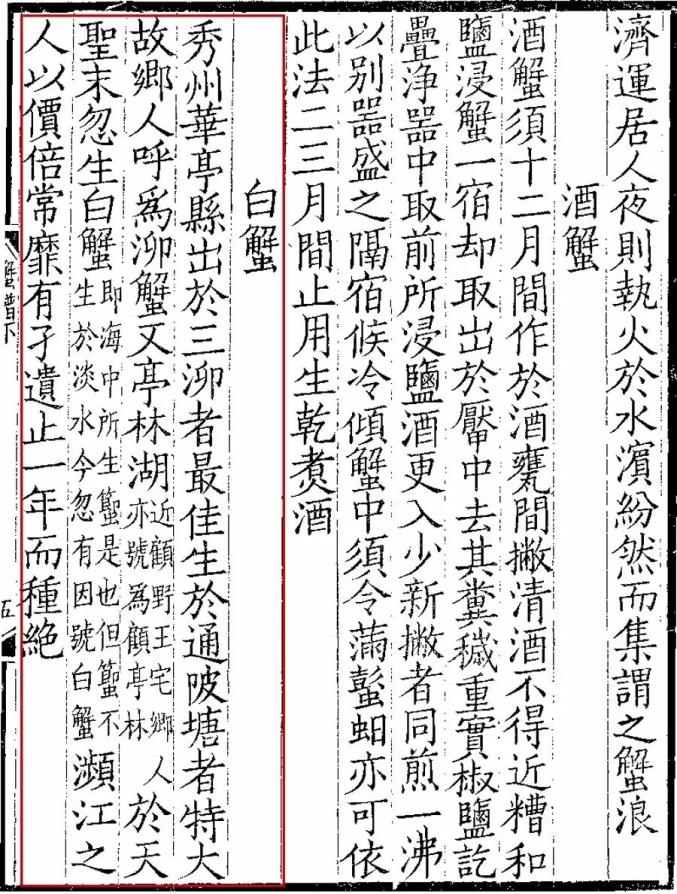 濟運居人夜則執火於水濱紛然而集謂之蟹浪
酒蟹
酒蟹須十二月間作於酒甕間撇清酒不得近糟和
鹽浸蟹一宿却取出於厴中去其糞穢重實椒鹽訖
疊浄器中取前所浸鹽酒更入少新撇者同煎一沸
以别器盛之隔宿候冷傾蟹中須令滿蟚蚏亦可依
此法二三月間止用生乾煑酒
白蟹
秀州華亭縣出於三泖者最佳生於通陂塘者特大
故鄉人呼爲泖蟹又亭林湖近顧野王宅鄉亦號爲顧亭林人於天
聖末忽生白蟹即海中所生蠞是也但蠞不生於淡水今忽有因號白蟹瀕江之
人以價倍常靡有孑遺止一年而種絶
蟹譜下
五